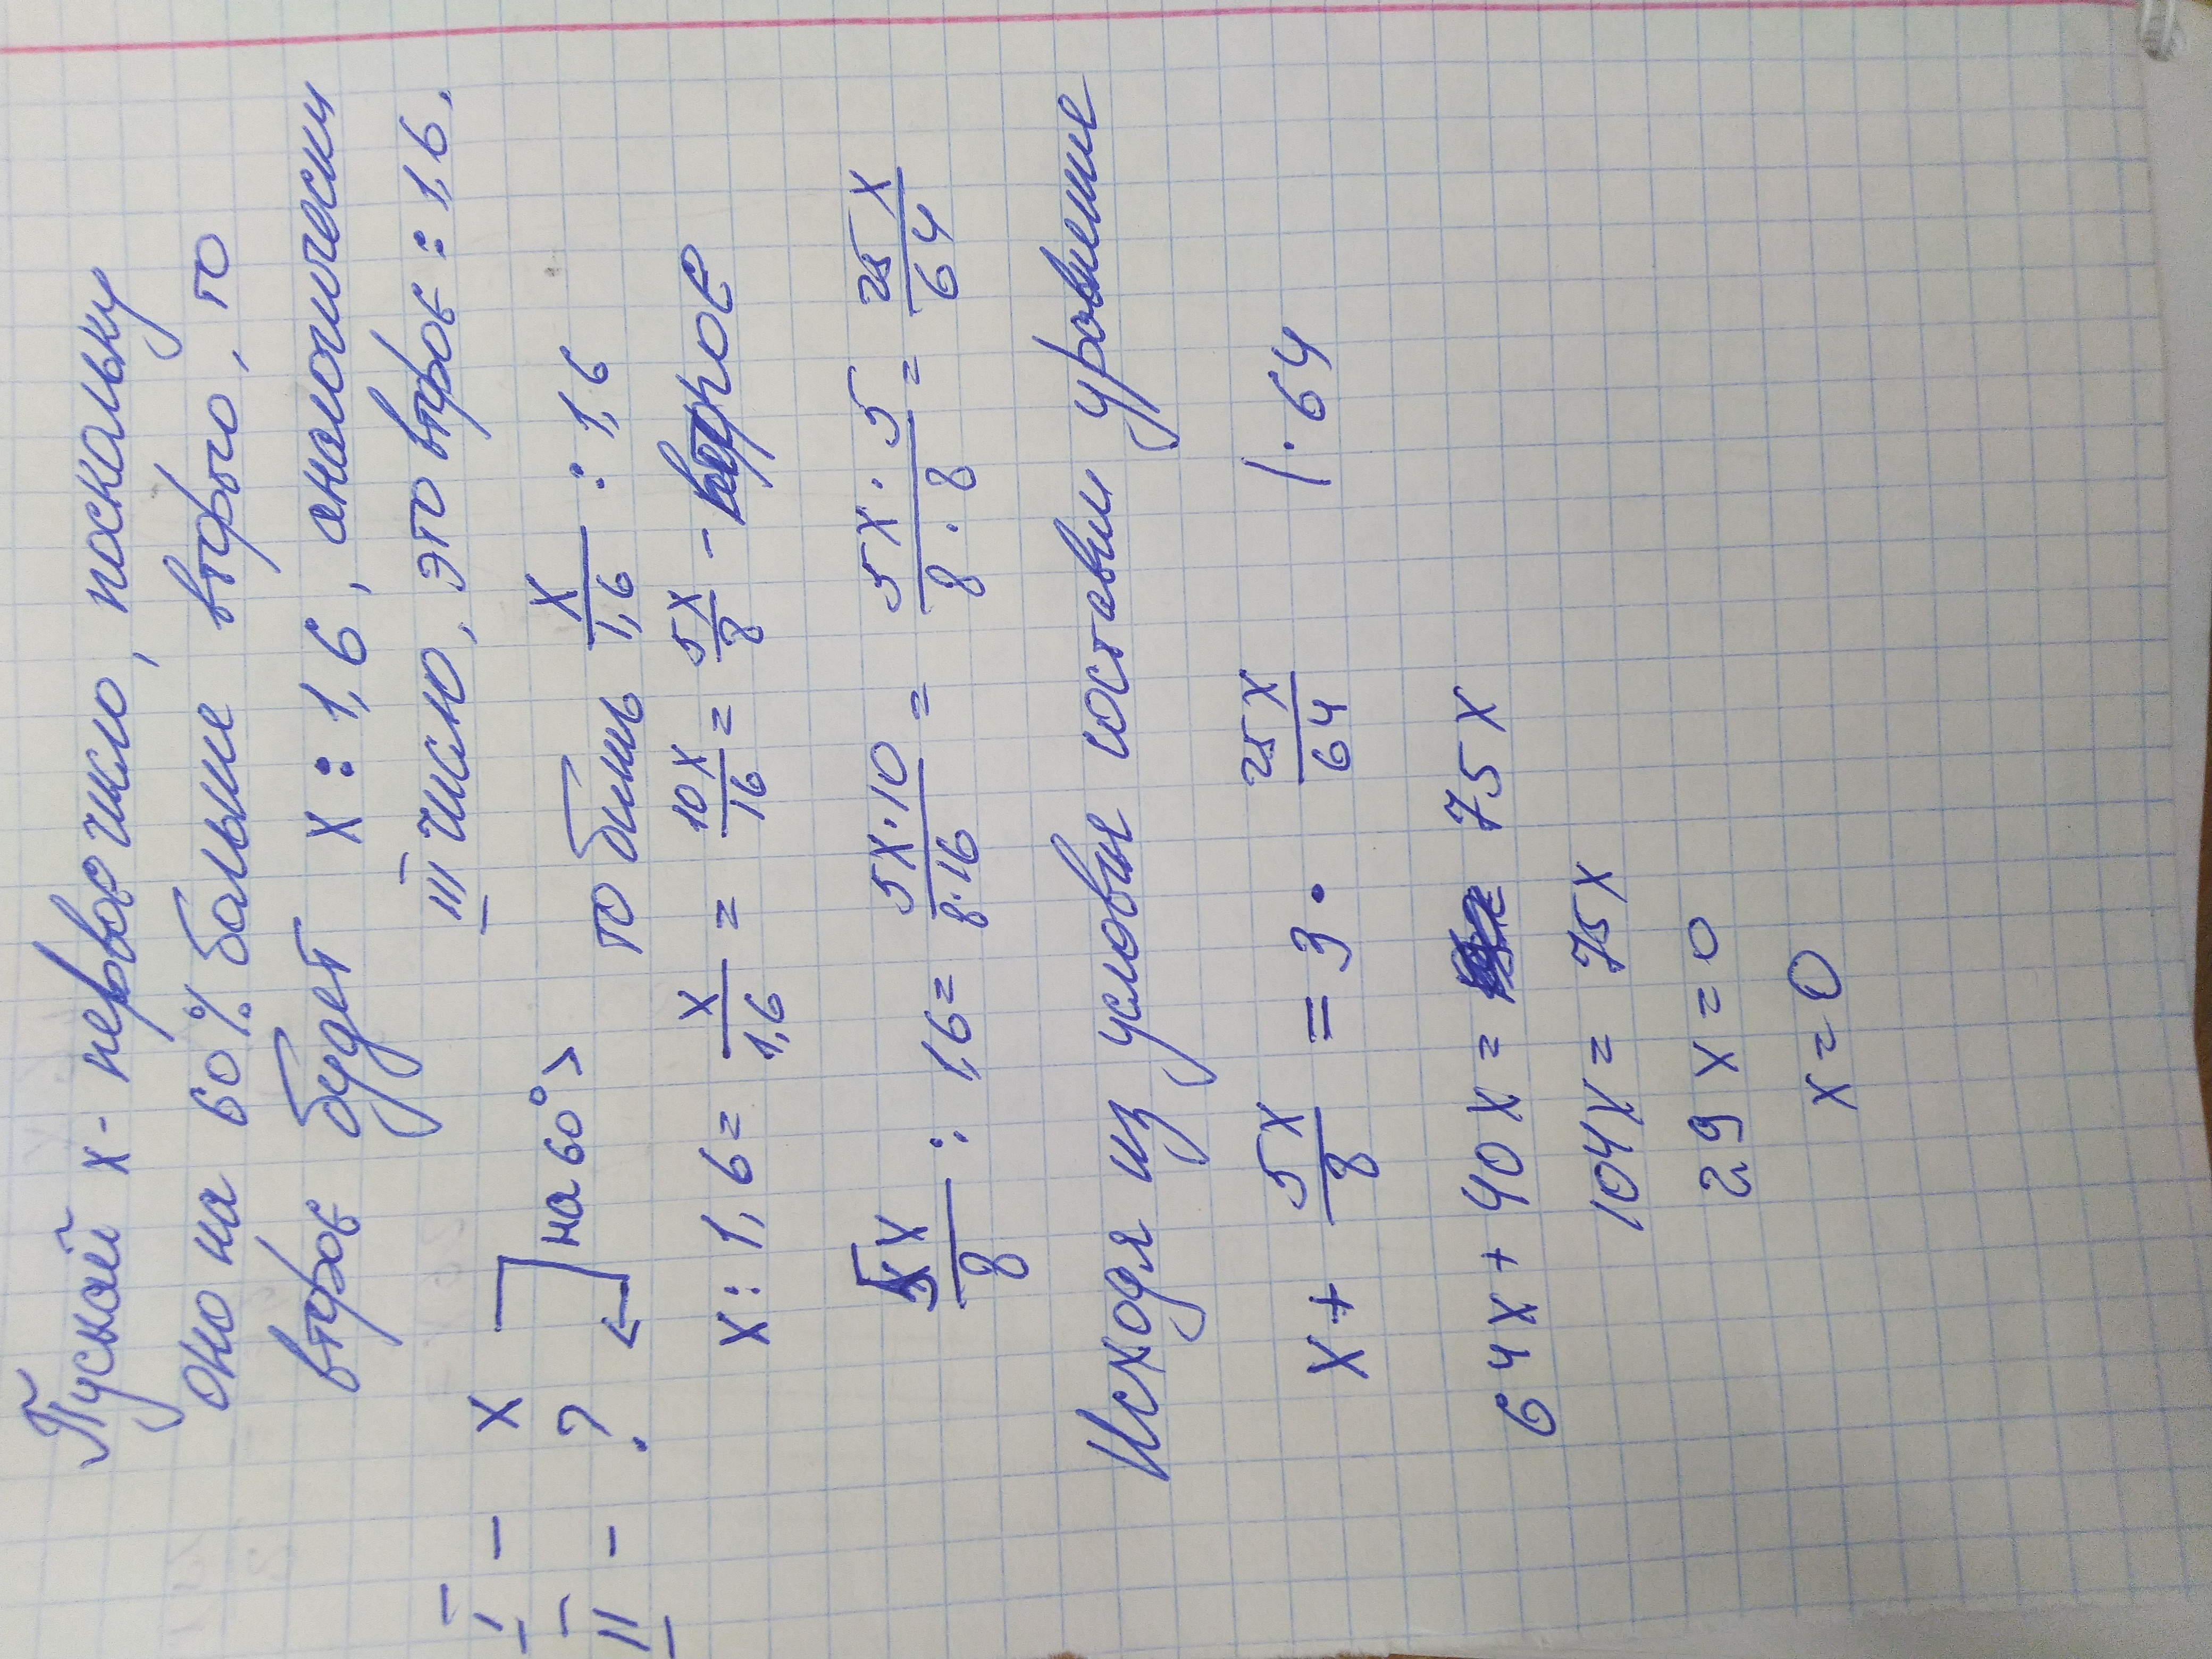 Пускай x - первое число, поскольку
оно на 60% больше второго, то
второе будет x : 1,6, аналогически
III число, это второе : 1,6.
I - x
II - ? на 60° > то бишь x/1,6 : 1,6
x : 1,6 = x/1,6 = 10x/16 = 5x/8 - второе
5x/8 : 1,6 = 5x·10/8·16 = 5x·5/8·8 = 25x/64
Исходя из условия составим уравнение
x + 5x/8 = 3 · 25x/64 /·64
64x + 40x = 75x
104x = 75x
29x = 0
x = 0